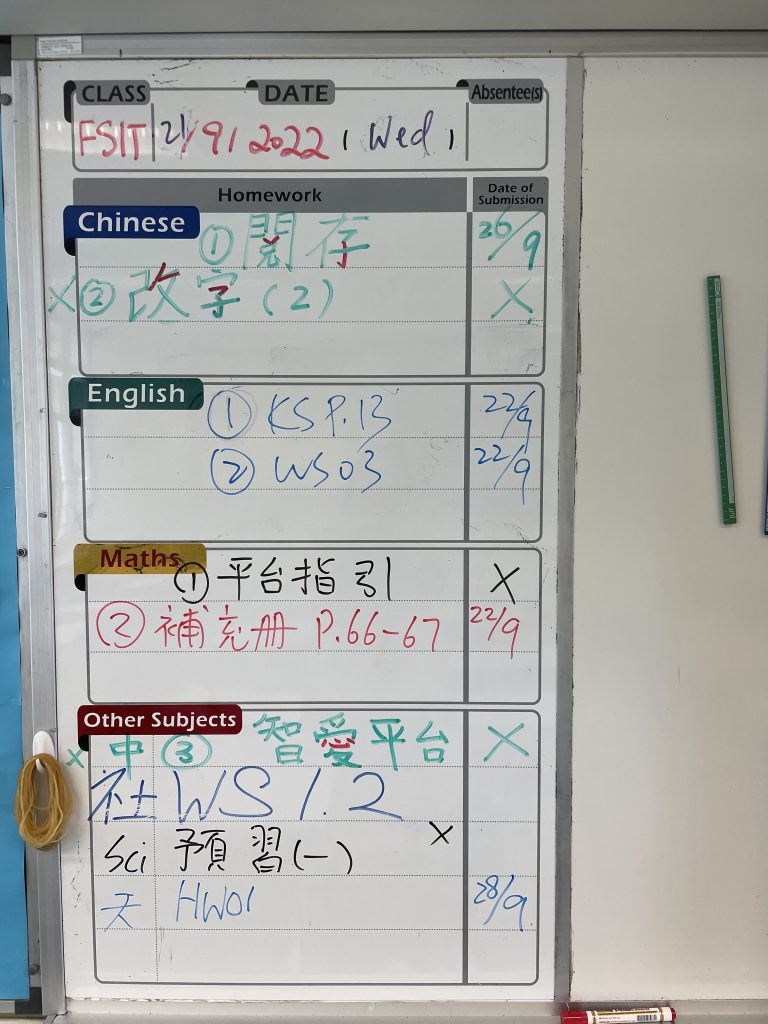 CLASS DATE Absentee(s)
FSIT 21/9/2022 (Wed)
Homework Date of Submission
Chinese ① 閱存 26/9
X ② 改字(2) X
English ① KS P.13 22/9
② WS03 22/9
Maths ① 平台指引 X
② 補充册 P.66-67 22/9
Other Subjects
x 中 ③ 智愛平台 X
社 WS 1.2
Sci 預習(一) X
天 HW01 28/9